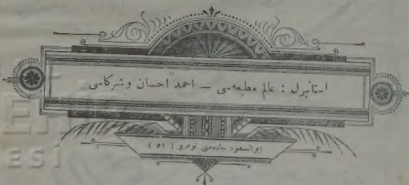 استانبول : عالم مطبعه‌سی – احمد احسان وشركاسی
ابوالسعود جاده‌سی نومرو ( ٥٢ )